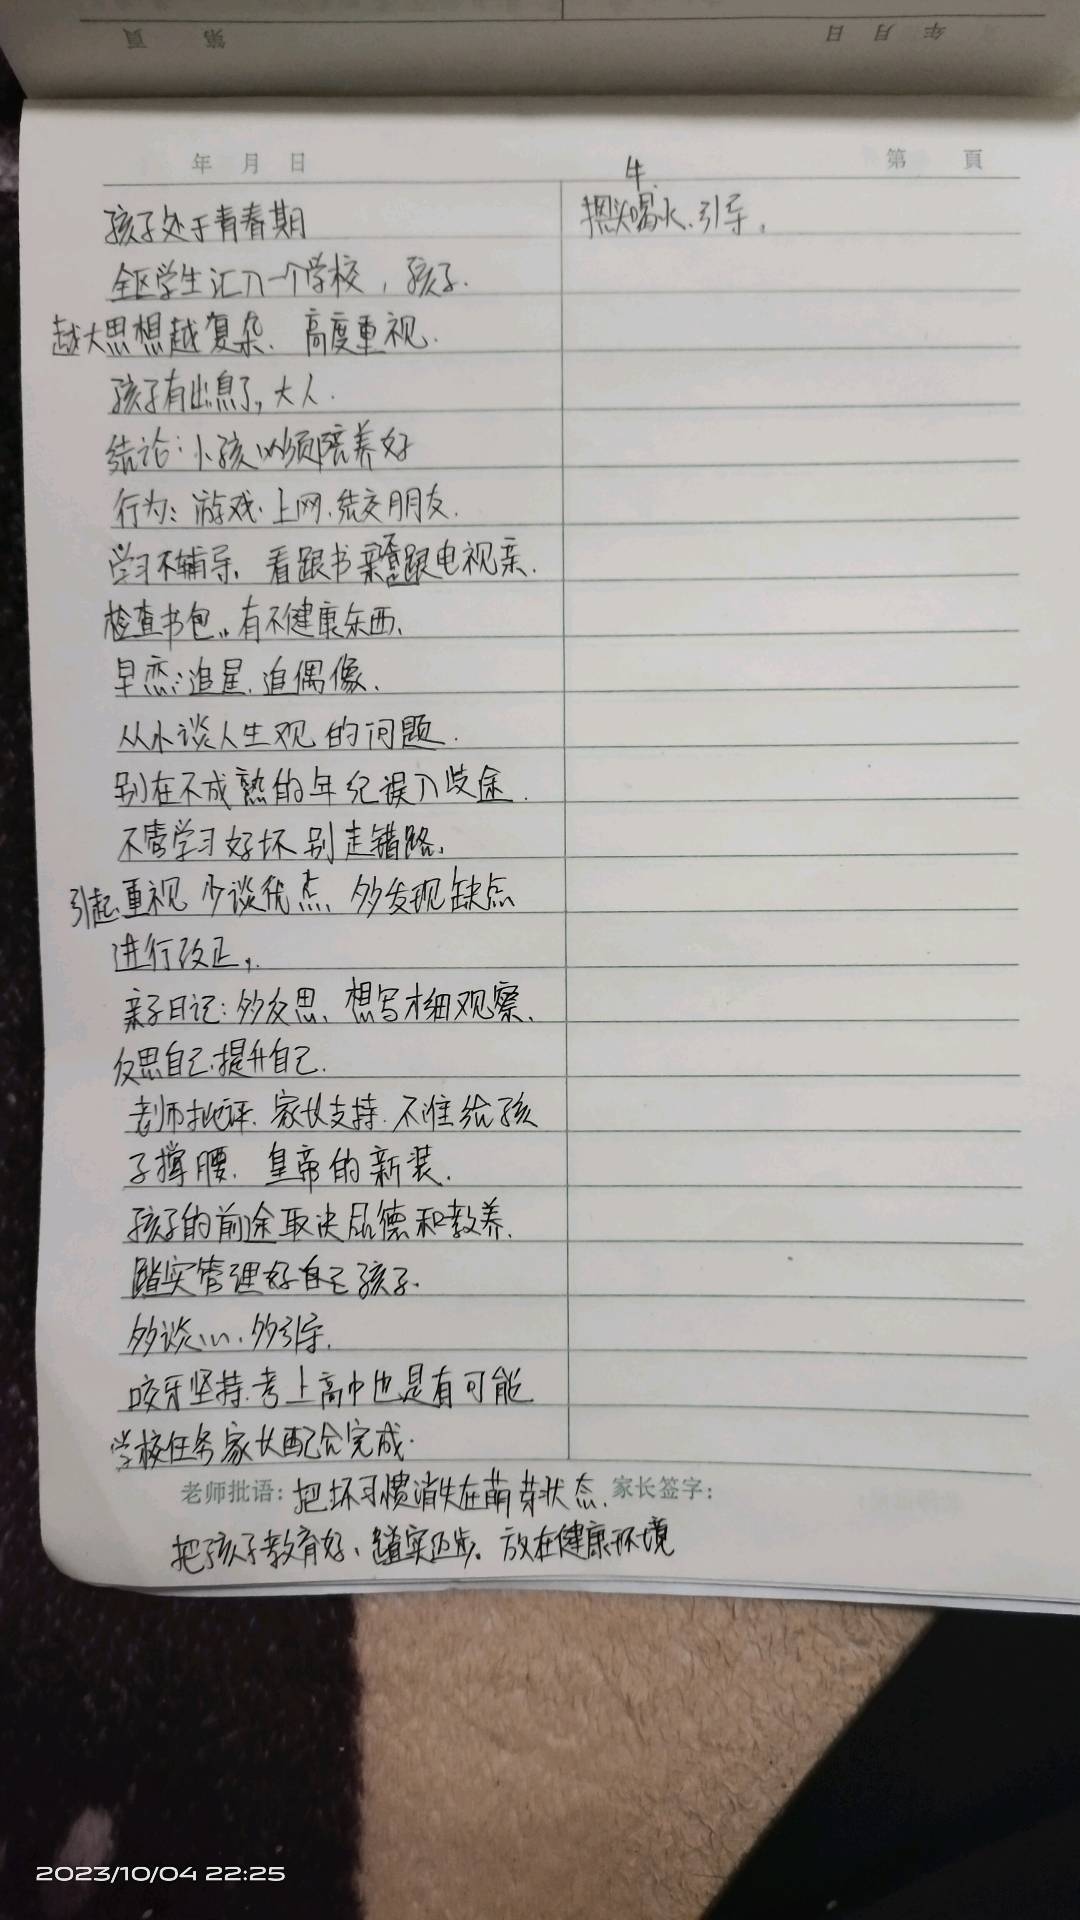 年 月 日
第 頁
孩子处于青春期
全区学生汇入一个学校，孩子.
越大思想越复杂、高度重视.
孩子有出息了,大人.
结论:小孩必须陪养好
行为:游戏.上网.结交朋友.
学习不辅导、看跟书亲还是跟电视亲.
检查书包,,有不健康东西、
早恋:追星、追偶像、
从小谈人生观的问题.
别在不成熟的年纪误入歧途.
不管学习好坏别走错路、
引起重视 少谈优点、多发现缺点
进行改正,.
亲子日记:多反思、想写才细观察、
反思自己.提升自己.
老师批评.家长支持.不准给孩
子撑腰.皇帝的新装.
孩子的前途取决品德和教养.
踏实管理好自己孩子.
多谈心.多引导.
咬牙坚持.考上高中也是有可能
学校任务家长配合完成.
老师批语: 把坏习惯消失在萌芽状态. 家长签字:
把孩子教育好、踏实迈步。放在健康环境
牛.
摁头喝水.引导.
年 月 日
第 頁
2023/10/04 22:25